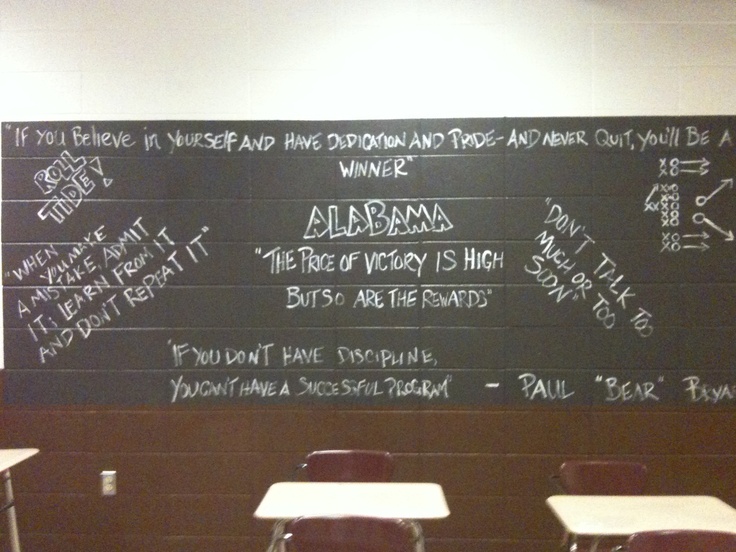 "IF YOU BELIEVE IN YOURSELF AND HAVE DEDICATION AND PRIDE - AND NEVER QUIT, YOU'LL BE A
WINNER"
ROLL
TIDE!
ALABAMA
"WHEN
YOU MAKE
A MISTAKE, ADMIT
IT; LEARN FROM IT
AND DON'T REPEAT IT"
"THE PRICE OF VICTORY IS HIGH
BUT SO ARE THE REWARDS"
"DON'T TALK TOO
MUCH OR TOO
SOON"
"IF YOU DON'T HAVE DISCIPLINE,
YOU CAN'T HAVE A SUCCESSFUL PROGRAM" - PAUL "BEAR" BRYA